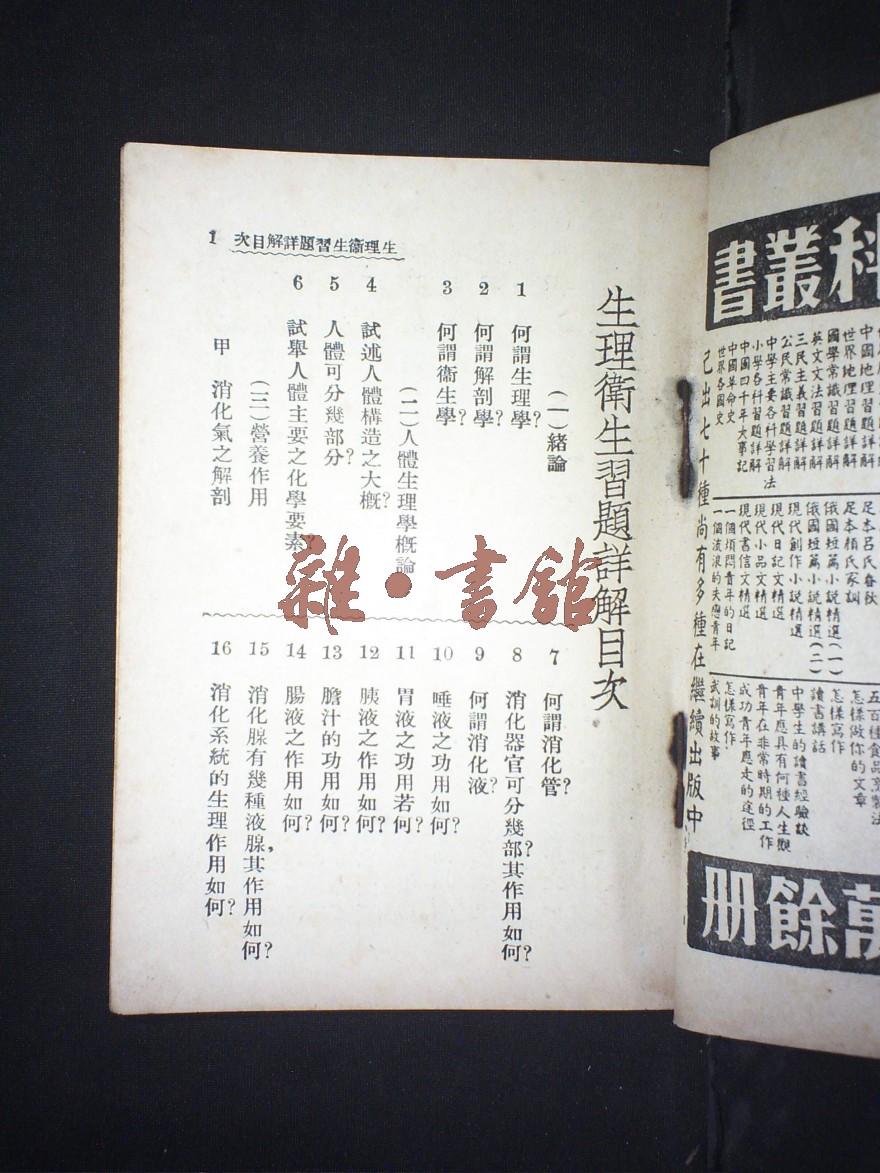 生理衛生習題詳解目次 1
生理衛生習題詳解目次
(一)緒論
1 何謂生理學?
2 何謂解剖學?
3 何謂衞生學?
(二)人體生理學概論
4 試述人體構造之大概?
5 人體可分幾部分?
6 試舉人體主要之化學要素?
(三)營養作用
甲 消化氣之解剖
7 何謂消化管?
8 消化器官可分幾部?其作用如何?
9 何謂消化液?
10 唾液之功用如何?
11 胃液之功用若何?
12 胰液之作用如何?
13 膽汁的功用如何?
14 腸液之作用如何?
15 消化腺有幾種液腺,其作用如何?
16 消化系統的生理作用如何?
雜·書館
科叢書
中國地理習題詳解
世界地理習題詳解
國學常識習題詳解
英文文法習題詳解
三民主義習題詳解
公民常識習題詳解
中學主要各科學習法
小學各科習題詳解
中國四十年大事記
中國革命史
世界各國史
足本呂氏春秋
足本顏氏家訓
俄國短篇小說精選(一)
俄國短篇小說精選(二)
現代創作小說精選
現代日記文精選
現代小品文精選
現代書信文精選
一個煩悶青年的日記
一個流浪的失戀青年
五百種食品烹製法
怎樣做你的文章
怎樣寫作
讀書講話
中學生的讀書經驗談
青年應具有何種人生觀
青年在非常時期的工作
成功青年應走的途徑
怎樣寫作
武訓的故事
已出七十種尚有多種在繼續出版中
萬餘册